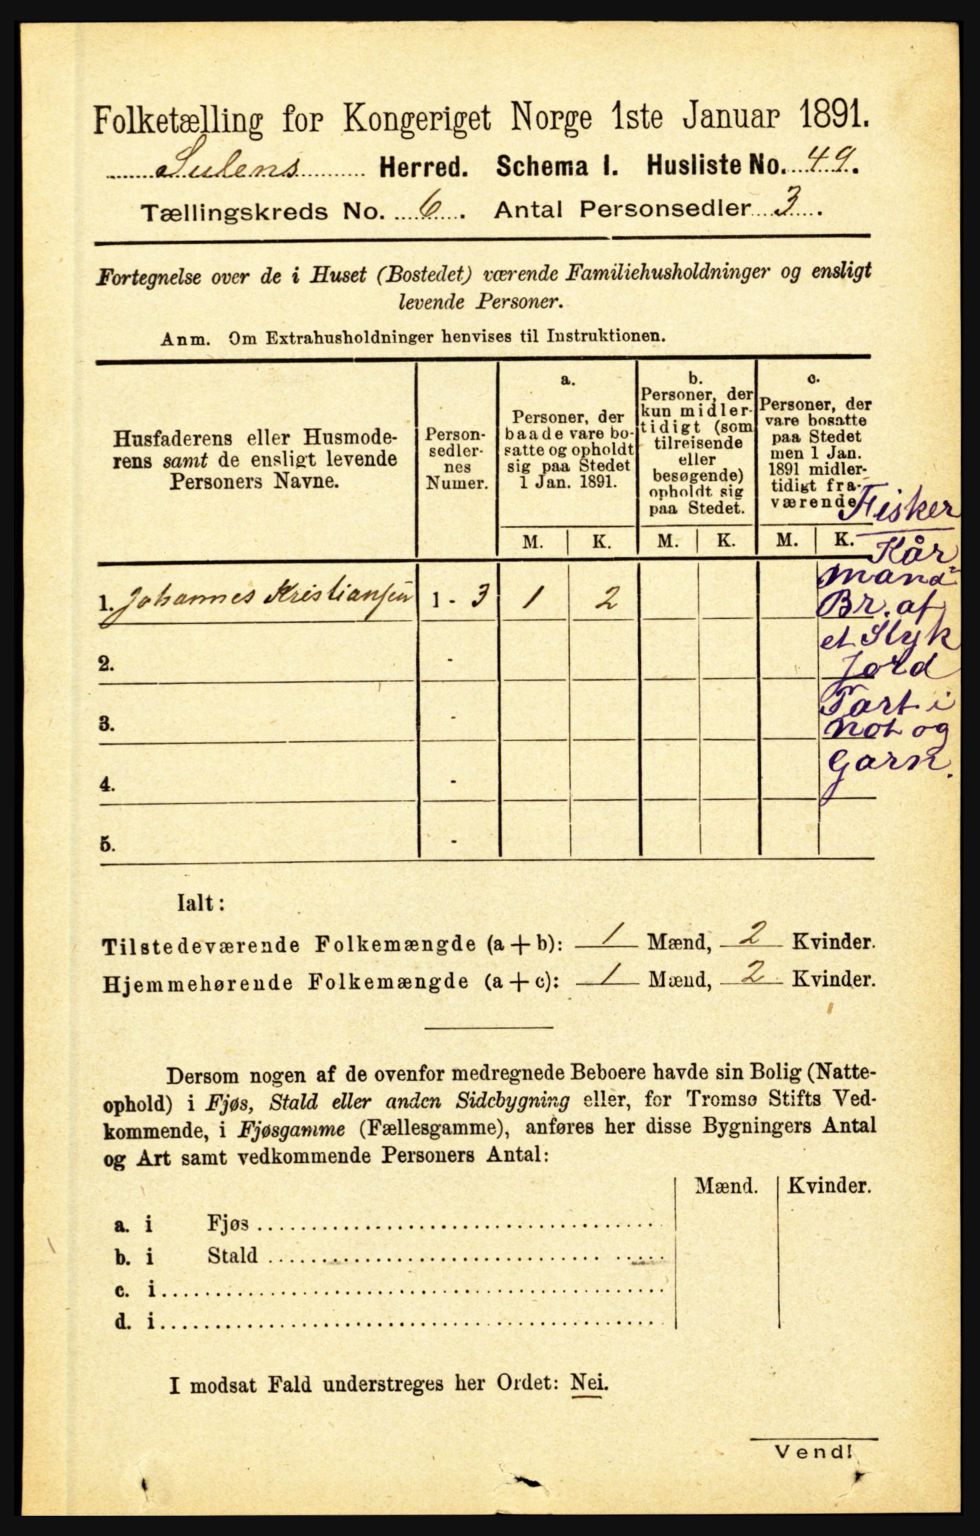 Folketælling for Kongeriget Norge 1ste Januar 1891.
Sulens Herred. Schema I. Husliste No. 49.
Tællingskreds No. 6. Antal Personsedler 3.
Fortegnelse over de i Huset (Bostedet) værende Familiehusholdninger og ensligt
levende Personer.
Anm. Om Extrahusholdninger henvises til Instruktionen.
Husfaderens eller Husmode-
rens samt de ensligt levende
Personers Navne.
Person-
sedler-
nes
Numer.
a.
Personer, der
baade vare bo-
satte og opholdt
sig paa Stedet
1 Jan. 1891.
b.
Personer, der
kun midler-
tidigt (som
tilreisende
eller
besøgende)
opholdt sig
paa Stedet.
c.
Personer, der
vare bosatte
paa Stedet
men 1 Jan.
1891 midler-
tidigt fra-
værende.
M. K. M. K. M. K.
1. Johannes Kristiansen 1 - 3 1 2
2. -
3. -
4. -
5. -
Fisker
Kår
mand
Br. af
et Styk
Jord
Part i
Not og
Garn.
Ialt:
Tilstedeværende Folkemængde (a+b): 1 Mænd, 2 Kvinder.
Hjemmehørende Folkemængde (a+c): 1 Mænd, 2 Kvinder.
Dersom nogen af de ovenfor medregnede Beboere havde sin Bolig (Natte-
ophold) i Fjøs, Stald eller anden Sidebygning eller, for Tromsø Stifts Ved-
kommende, i Fjøsgamme (Fællesgamme), anføres her disse Bygningers Antal
og Art samt vedkommende Personers Antal:
Mænd. Kvinder.
a. i Fjøs
b. i Stald
c. i
d. i
I modsat Fald understreges her Ordet: Nei.
Vend!